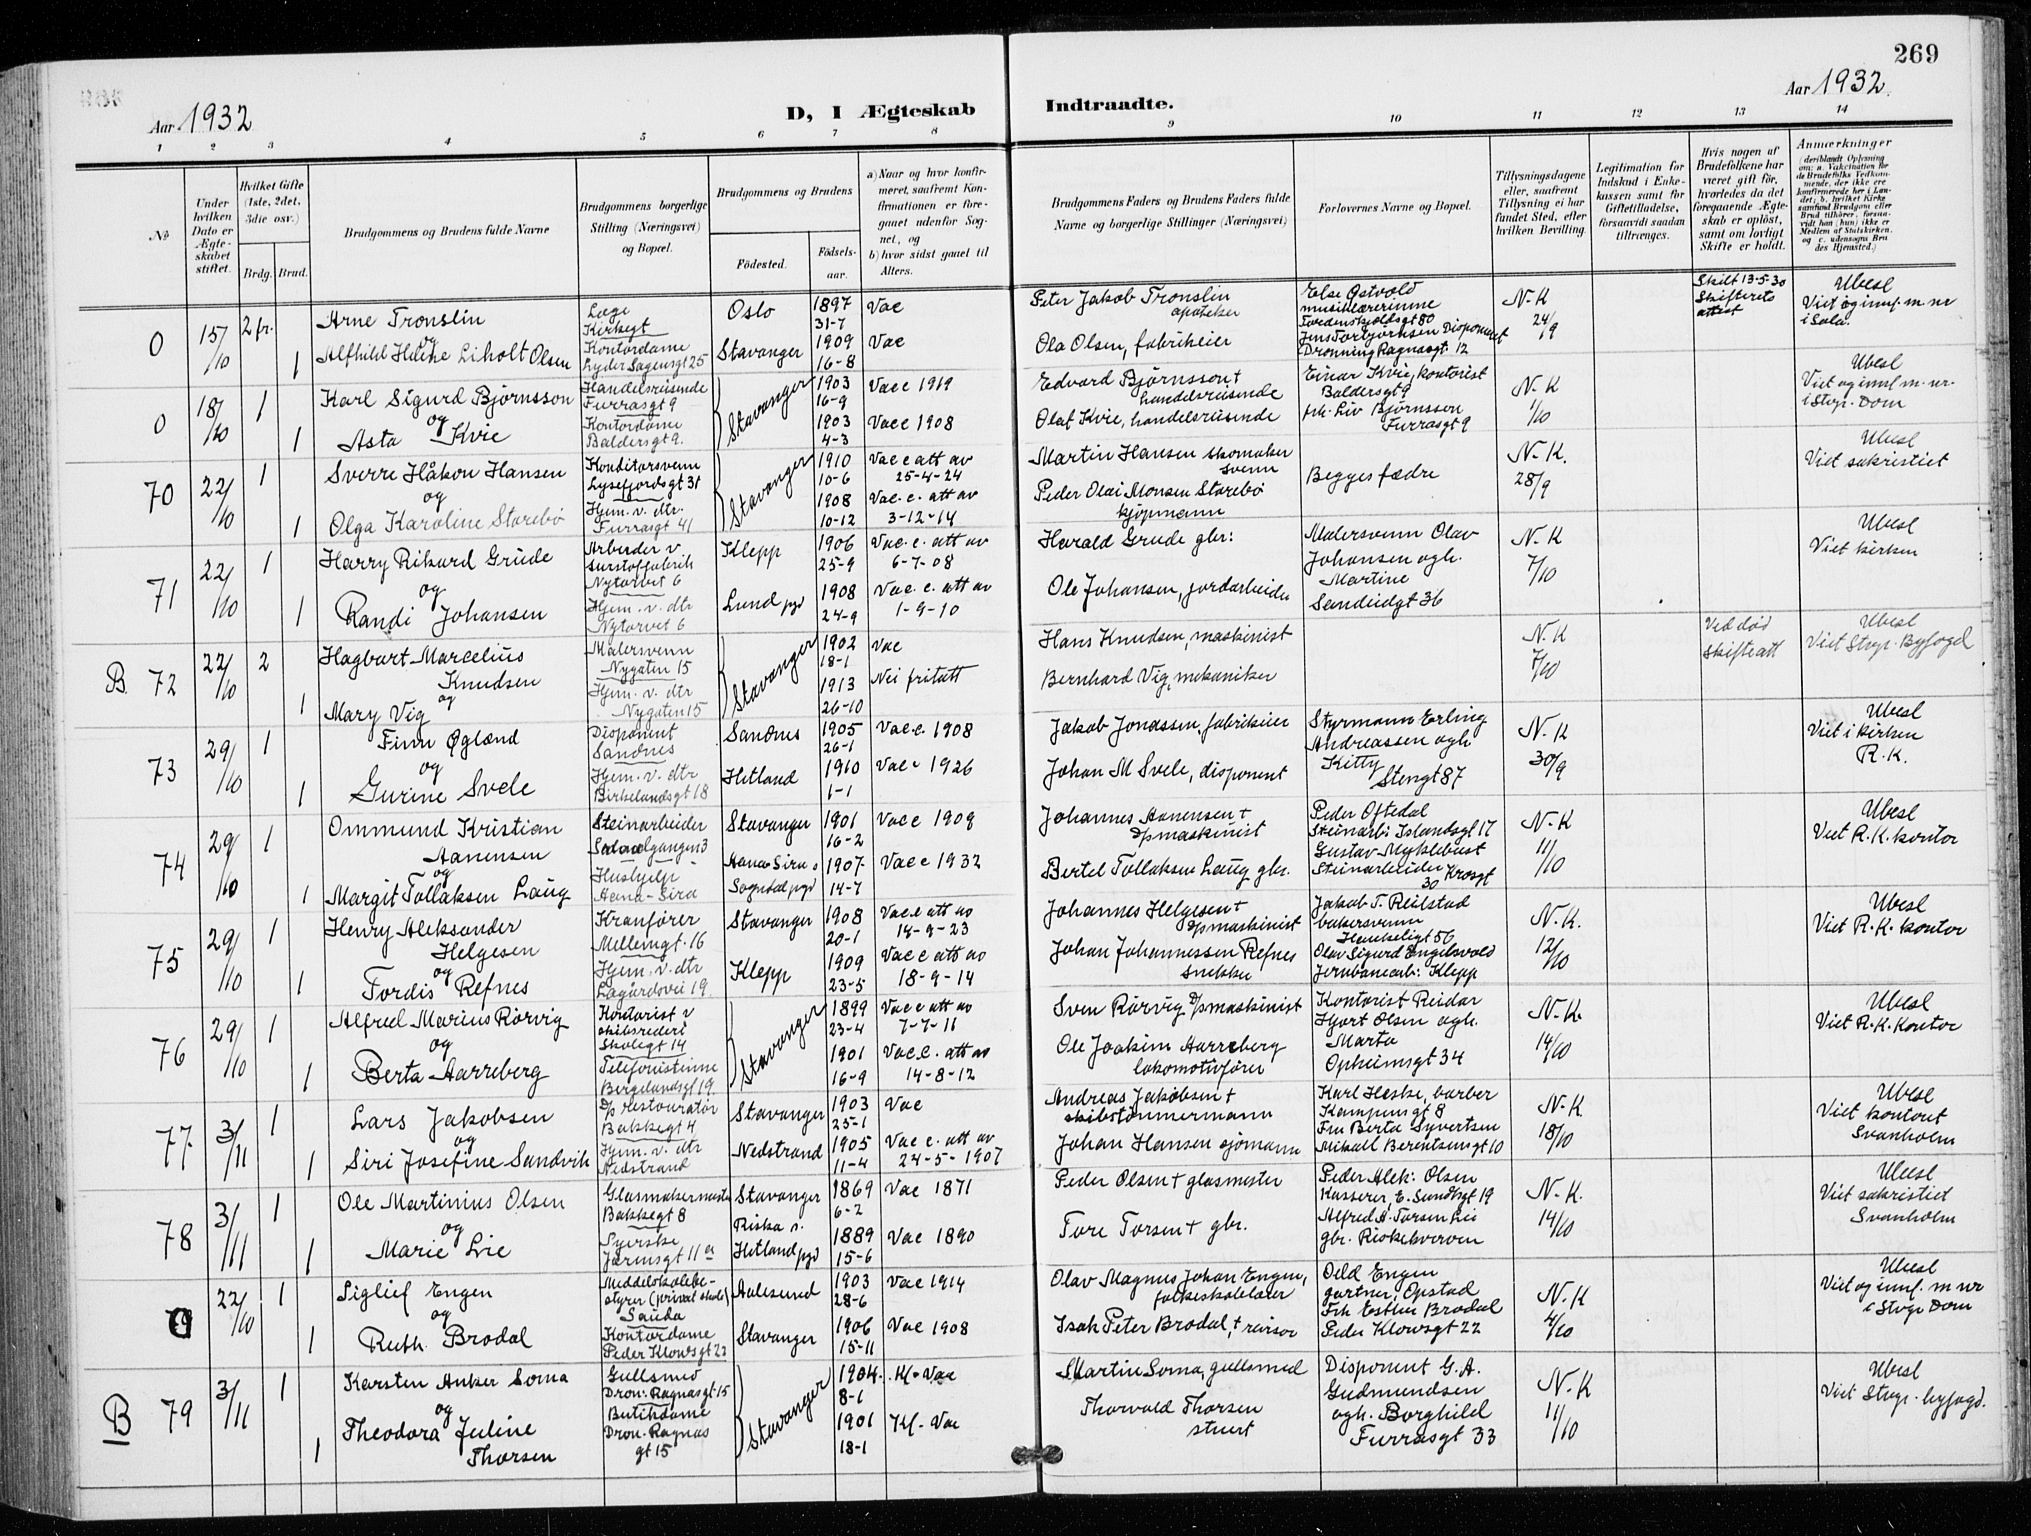 269
Aar 1932
D, I Ægteskab Indtraadte.
Aar 1932.
1 2 3 4 5 6 7 8 9 10 11 12 13 14
No
Under hvilken Dato er Ægteskabet stiftet.
Hvilket Gifte (1ste, 2det, 3die osv.)
Brdg. Brud.
Brudgommens og Brudens fulde Navne
Brudgommens borgerlige Stilling (Næringsvei) og Bopæl.
Brudgommens og Brudens
Fødested.
Fødselsaar.
a) Naar og hvor konfirmeret, saafremt Konfirmationen er foregaaet udenfor Sognet, og
b) hvor sidst gaaet til Alters.
Brudgommens Faders og Brudens Faders fulde Navne og borgerlige Stillinger (Næringsvei)
Forlovernes Navne og Bopæl.
Tillysningsdagene eller, saafremt Tillysning ei har fundet Sted, efter hvilken Bevilling.
Legitimation for Indskud i Enkekassen samt for Giftetilladelse, forsaavidt saadan tiltrænges.
Hvis nogen af Brudefolkene har været gift før, hvorledes da det foregaaende Ægteskab er opløst, samt om lovligt Skifte er holdt.
Anmærkninger
0 15/10 2 fr. Arne Tronslin Læge Kirkegt Oslo 1897 31-7 Vac
og
1 Alfhild Helene Liholt Olsen Kontordame Lyder Sagensgt 25 Stavanger 1909 16-8 Vac
Peter Jakob Tronslin apoteker
Ola Olsen, fabrikeier
Else Østvold musiklærerinne Tordenskjoldsgt 80
Jens Torbjørnsen Disponent Dronning Ragnasgt. 12
N-K 24/9
Skilt 13-5-30 Skifteretsattest
Ubesl Viet og innf. m. nr i Sola.
0 18/10 1 Karl Sigurd Bjørnsson Handelsreisende Furrasgt 9 Stavanger 1903 16-9 Vacc 1919
og
1 Asta Kvie Kontordame Baldersgt 9. 1903 4-3 Vacc 1908
Edvard Bjørnsson + handelsreisende
Olaf Kvie, handelsreisende
Einar Kvie, kontorist Baldersgt 9
frk. Liv Bjørnsson Furrasgt 9
N-K 1/10
Ubesl Viet og innf. m. nr. i Stvgr. Dom
70 22/10 1 Sverre Håkon Hansen Konditorsvenn Lysefjordsgt 31 Stavanger 1910 10-6 Vacc att av 25-4-24
og
1 Olga Karoline Starebø Hjem. v. dtr. Furrasgt 41 1908 10-12 Vac. c. att av 3-12-14
Martin Hansen skomaker svenn
Peder Olai Monsen Starebø kjøpmann
Begges fædre
N-K. 28/9
Ubesl Viet sakristiet
71 22/10 1 Harry Rikard Grude Arbeider v. Surstoffabrik Nytorvet 6 Klepp 1906 25-9 Vac. c. att av 6-7-08
og
1 Randi Johansen Hjem. v. dtr Nytorvet 6 Lund pgd 1908 24-9 Vac. c. att av 1-9-10
Harald Grude gbr:
Ole Johansen, jordarbeider
Malersvenn Olav Johansen ogh. Martine Sandeidgt 36
N-K 7/10
Ubesl Viet kirken
B. 72 22/10 2 Hagbart Marcelius Knudsen Malersvenn Nygaten 15 Stavanger 1902 18-1 Vac
og
1 Mary Vig Hjem. v. dtr Nygaten 15 1913 26-10 Nei fritatt
Hans Knudsen, maskinist
Bernhard Vig, mekaniker
N.K 7/10
Ved død skifteatt
Ubesl Viet Stvgr. Byfogd
73 29/10 1 Finn Øglænd Disponent Sandnes Sandnes 1905 26-1 Vac.c. 1908
og
1 Gurine Svele Hjem. v. dtr Birkelandsgt 18 Hetland 1910 1-1 Vacc 1926
Jakob Jonassen, fabrikeier
Johan M Svele, disponent
Styrmann Erling Andreassen ogh Kitty Stengt 87
N-K 30/9
Ubesl Viet i kirken R.K.
74 29/10 1 Ommund Kristian Aanensen Steinarbeider Stavanger 1901 16-2 Vacc 1909
og
1 Margit Tollaksen Laug Hushjelp Aana-Sira Aana-Sira Sogndal pgd 1907 14-7 Vacc 1932
Johannes Aanensen + D/s maskinist
Bertel Tollaksen Laug gbr.
Peder Oftedal Steinarb: Islandsgt 17
Gustav Myklebust Steinarbeider 30 Krosgt
N-K 11/10
Ubesl Viet R.K. kontor
75 29/10 1 Henry Aleksander Helgesen Kranfører Mellemgt. 16 Stavanger 1908 20-1 Vacc att av 14-9-23
og
1 Tordis Refnes Hjem. v. dtr Lagårdsvei 19 Klepp 1909 23-5 Vacc att av 18-9-14
Johannes Helgesen + D/s maskinist
Johan Johannessen Refnes snekker
Jakob T. Reilstad bakersvenn 56
Olav Sigurd Engelsvold Jernbanearb: Klepp
N-K. 12/10
Ubesl Viet R.K. kontor
76 29/10 1 Alfred Marius Rørvig Kontorist v skibsrederi Skolegt 14 Stavanger 1899 23-4 Vacc att av 7-7-11
og
1 Berta Aarreberg Telefonistinne Bergelandsgt 19. 1901 16-9 Vac.c. att av 14-8-12
Sven Rørvig D/s maskinist
Ole Joakim Aarreberg lokomotivfører
Kontorist Reidar Hjort Olsen ogh. Marta Opheimsgt 34
N-K. 14/10
Ubesl Viet R.K. Kontor
77 3/11 1 Lars Jakobsen D/s restauratør Bakkegt 4 Stavanger 1903 25-1 Vac
og
1 Siri Josefine Sandvik Hjem. v. dtr Nedstrand Nedstrand 1905 11-4 Vac c. att av 24-5-1907
Andreas Jakobsen + skibstømmermann
Johan Hansen sjømann
Karl Heske, barber Kampensgt 8
Fru Berta Syvertsen Mikaell Berentsensgt 10
N-K. 18/10
Ubesl Viet kontoret Svanholm
78 3/11 1 Ole Martinius Olsen Glasmakermester Bakkegt 8 Stavanger 1869 6-2 Vac 1871
og
1 Marie Lie Syerske Jærensgt 11 a Riska s. Hetland pgd 1889 15-6 Vac 1890
Peder Olsen + glasmester
Tore Torsen + gbr.
Peder Alek: Olsen Kasserer, E. Sundtsgt 19
Alfred A. Torsen Lie gbr.
N-K. 14/10
Ubesl Viet sakristiet Svanholm
0 22/10 1 Sigleif Engen Middelskolebestyrer (privat skole) Sauda Aalesund 1903 28-6 Vac 1914
og
1 Ruth Brodal Kontordame Peder Klowsgt 22 Stavanger 1906 15-11 Vac 1908
Olav Magnus Johan Engen, folkeskolelærer
Isak Peter Brodal, + revisor
Odd Engen gartner, Opstad
Frk Esther Brodal Peder Klowsgt 22
N-K 4/10
Ubesl Viet og innf. m nr i Stvgr Dom
B 79 3/11 1 Karsten Anker Soma Gullsmed Dron. Ragnasgt 15 Stavanger 1904. 8-1 Kf. Vac
og
1 Theodora Juline Thorsen Butikdame Dron. Ragnas gt 15 1901 18-1 Kf. Vac
Martin Soma, gullsmed
Thorvald Thorsen stuert
Disponent G.A. Gudmundsen ogh. Borghild Furrasgt 33
N-K 11/10
Ubesl Viet Stvgr. byfogd.